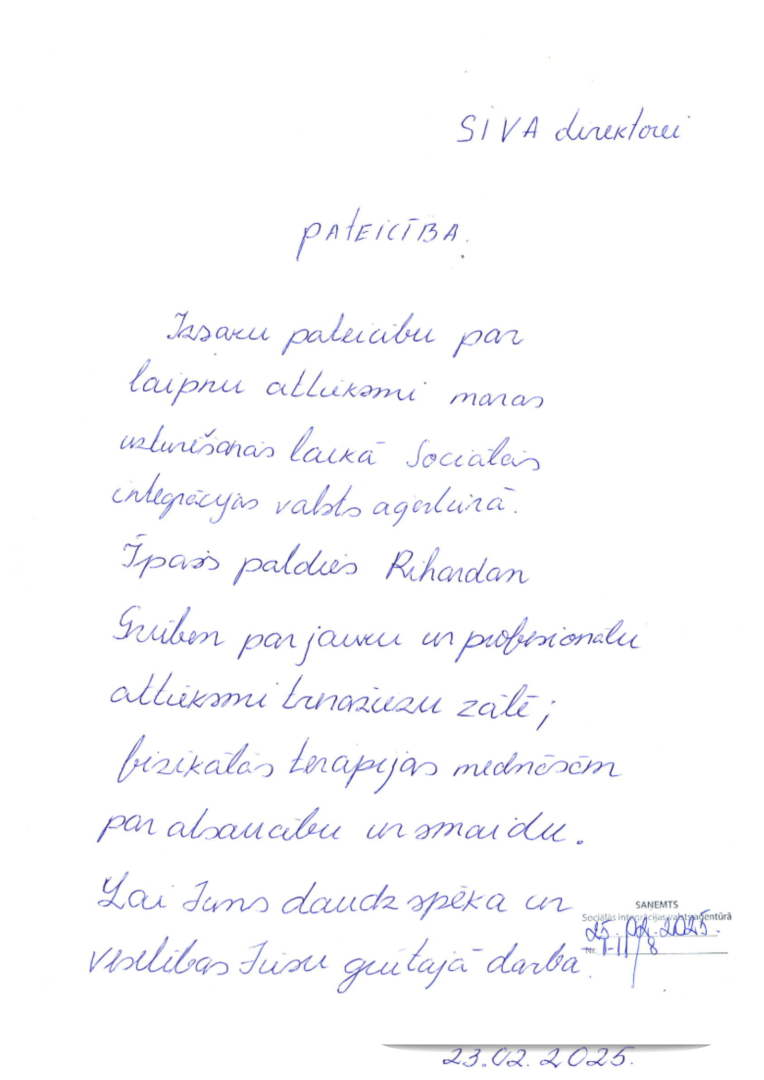 SIVA direktorei
PATEICĪBA.
Izsaku pateicību par
laipnu attieksmi manas
uzturēšanās laikā Sociālās
integrācijas valsts aģentūrā.
Īpašs paldies Rihardam
par jauku un profesionālu
attieksmi trenažieru zālē;
fizikālās terapijas medmāsām
par atsaucību un smaidu.
Lai Jums daudz spēka un
veselības Jūsu grūtajā darbā.
SAŅEMTS
Sociālās integrācijas valsts aģentūrā
25.02.2025.
Nr. 1-11/8
23.02.2025.